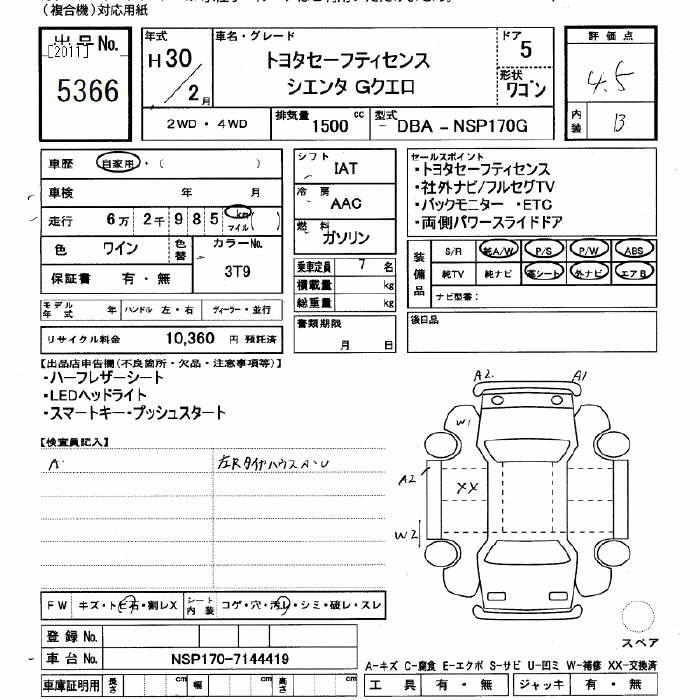 （複合機）対応用紙
出品No.
[2011]
5366
年式
H30
2月
車名・グレード
トヨタセーフティセンス
シエンタ Gクエロ
ドア
5
形状
ワゴン
評価点
4.5
内装
B
2WD・4WD
排気量 1500 cc
型式 DBA - NSP170G
車歴 自家用・( )
車検 年 月
走行 6万2千985 km マイル ( )
色 ワイン 色替
カラーNo. 3T9
保証書 有・無
シフト IAT
冷房 AAC
燃料 ガソリン
乗車定員 7 名
積載量 kg
総重量 kg
セールスポイント
・トヨタセーフティセンス
・社外ナビ/フルセグTV
・バックモニター ・ETC
・両側パワースライドドア
装備品
S/R 純A/W P/S P/W ABS
純TV 純ナビ 革シート 外ナビ エアB
ナビ型番：
モデル年式 年 ハンドル 左・右 ディーラー・並行
リサイクル料金 10,360 円 預託済
書類期限
月 日
後日品
【出品店申告欄(不良箇所・欠品・注意事項等)】
・ハーフレザーシート
・LEDヘッドライト
・スマートキー・プッシュスタート
【検査員記入】
A
左Rタイヤハウス A・U
A2 A1
W1
A2
XX
W2
FW キズ・トビ石・割レX
シート内装 コゲ・穴・汚レ・シミ・破レ・スレ
スペア
登録No.
車台No. NSP170-7144419
車庫証明用 長さ cm 幅 cm 高さ cm
A-キズ C-腐食 E-エクボ S-サビ U-凹ミ W-補修 XX-交換済
工具 有・無 ジャッキ 有・無